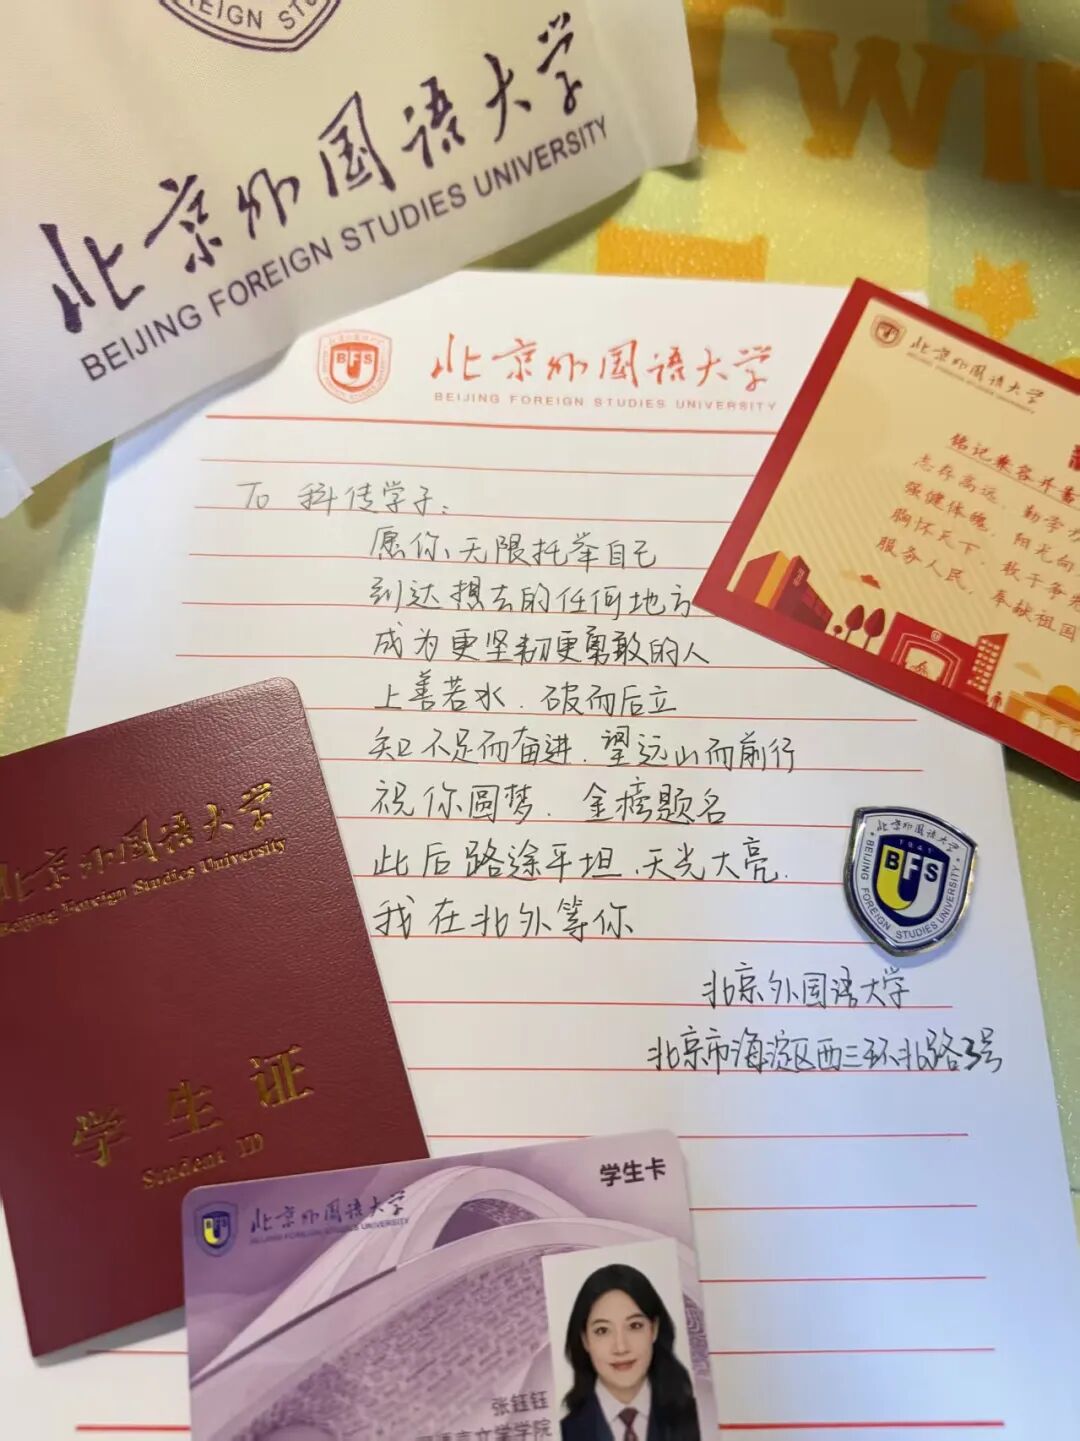 EIGN STUD
北京外国语大学
BEIJING FOREIGN STUDIES UNIVERSITY
Twin
BFS
北京外国语大学
BEIJING FOREIGN STUDIES UNIVERSITY
北京外国语大学
铭记兼容并蓄
志存高远、勤学
强健体魄、阳光向
胸怀天下、敢于争先
服务人民、奉献祖国
To 科传学子:
愿你、无限托举自己
到达想去的任何地方
成为更坚韧更勇敢的人
上善若水、破而后立
知不足而奋进、望远山而前行
祝你圆梦、金榜题名
此后路途平坦、天光大亮.
我在北外等你
北京外国语大学
北京市海淀区西三环北路3号
北京外国语大学
1941
BFS
BEIJING FOREIGN STUDIES UNIVERSITY
北京外国语大学
Beijing Foreign Studies University
学生证
Student ID
学生卡
BFS
北京外国语大学
BEIJING FOREIGN STUDIES UNIVERSITY
张钰钰
语言文学学院